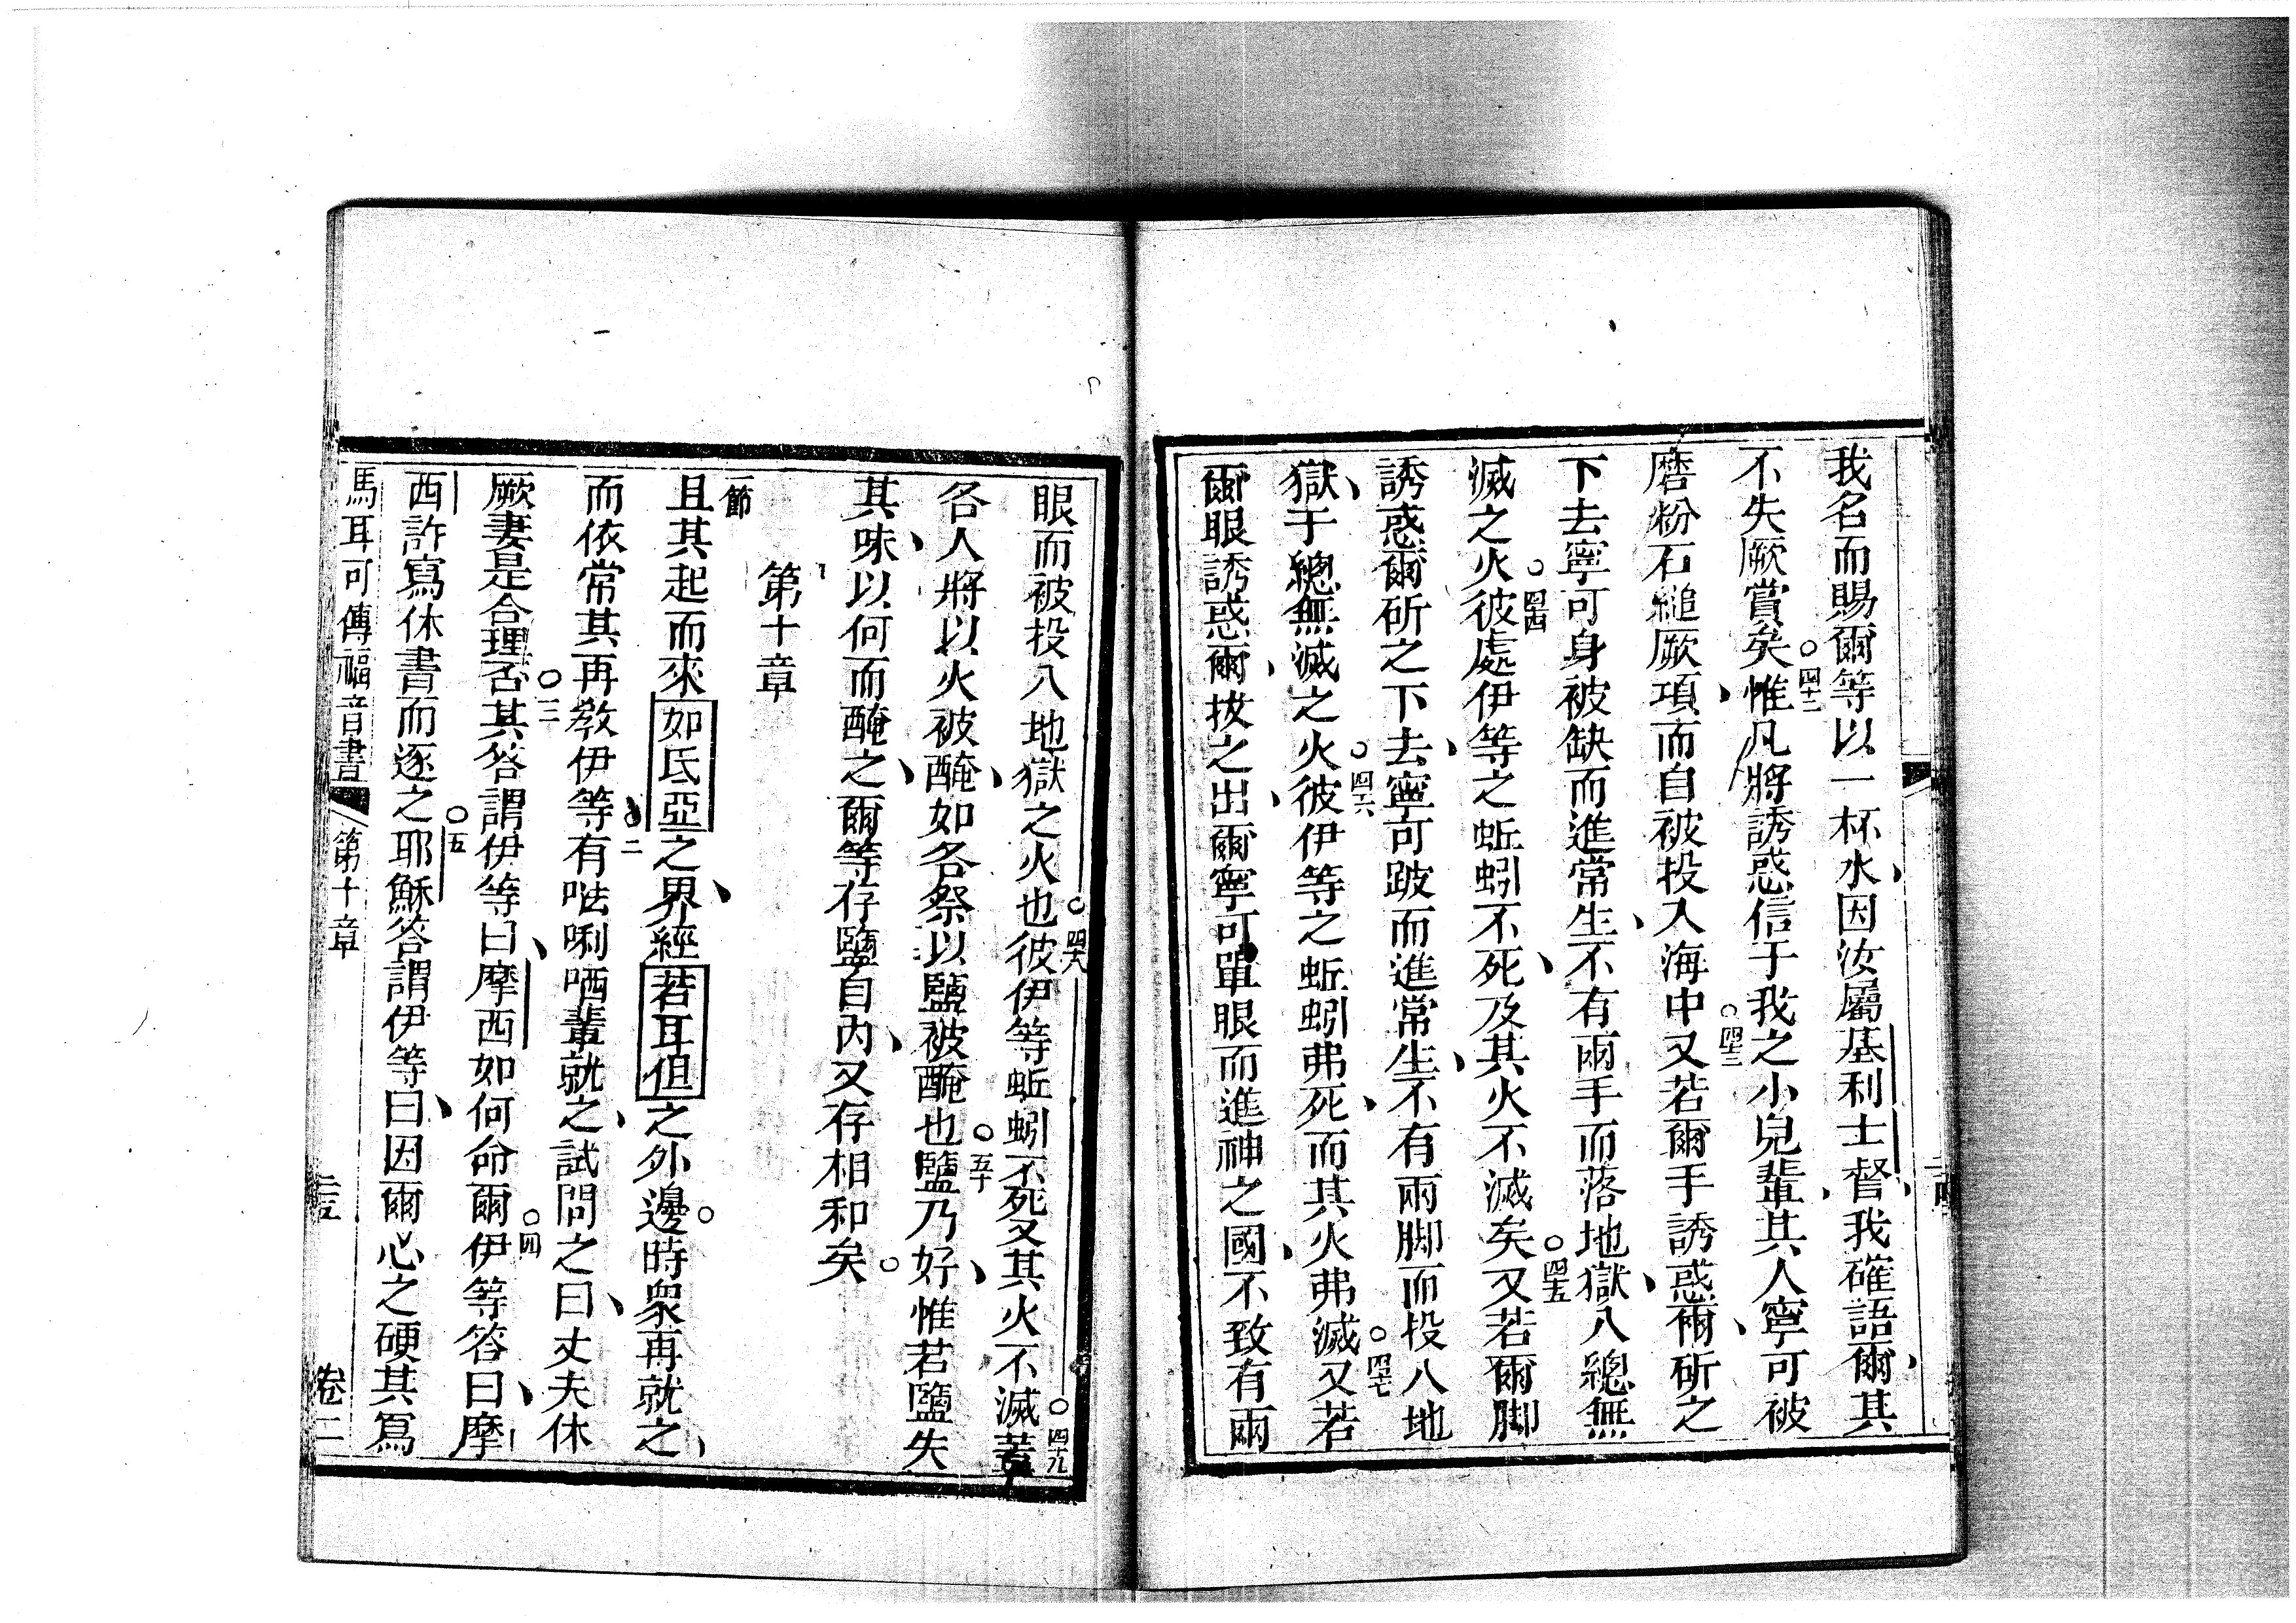 我名而賜爾等以一杯水、因汝屬基利士督、我確語爾、其
不失厥賞矣○四十二惟凡將誘惑信于我之小兒輩、其人寧可被
磨粉石縋厥項、而自被投入海中○四十三又若爾手誘惑爾、斫之
下去、寧可身被缺而進常生、不有兩手而落地獄、入總無
滅之火○四十四彼處伊等之蚯蚓不死、及其火不滅矣○四十五又若爾脚
誘惑爾斫之下去、寧可跛而進常生、不有兩脚而投入地
獄、于總無滅之火○四十六彼伊等之蚯蚓弗死、而其火弗滅○四十七又若
爾眼誘惑爾、拔之出、爾寧可單眼而進神之國、不致有兩
眼而被投入地獄之火也○四十八彼伊等蚯蚓不死又其火不滅○四十九蓋
各人將以火被醃、如各祭以鹽被醃也○五十鹽乃好、惟若鹽失
其味、以何而醃之、爾等存鹽自內、又存相和矣○
第十章
一節
且其起而來如氐亞之界、經若耳但之外邊○時衆再就之、
而依常其再敎伊等○二有𠵽唎哂輩就之、試問之曰、丈夫休
厥妻是合理否○三其答謂伊等曰、摩西如何命爾○四伊等答曰、摩
西許寫休書而逐之○五耶穌答謂伊等曰、因爾心之硬其寫
馬耳可傳福音書 第十章 卷二